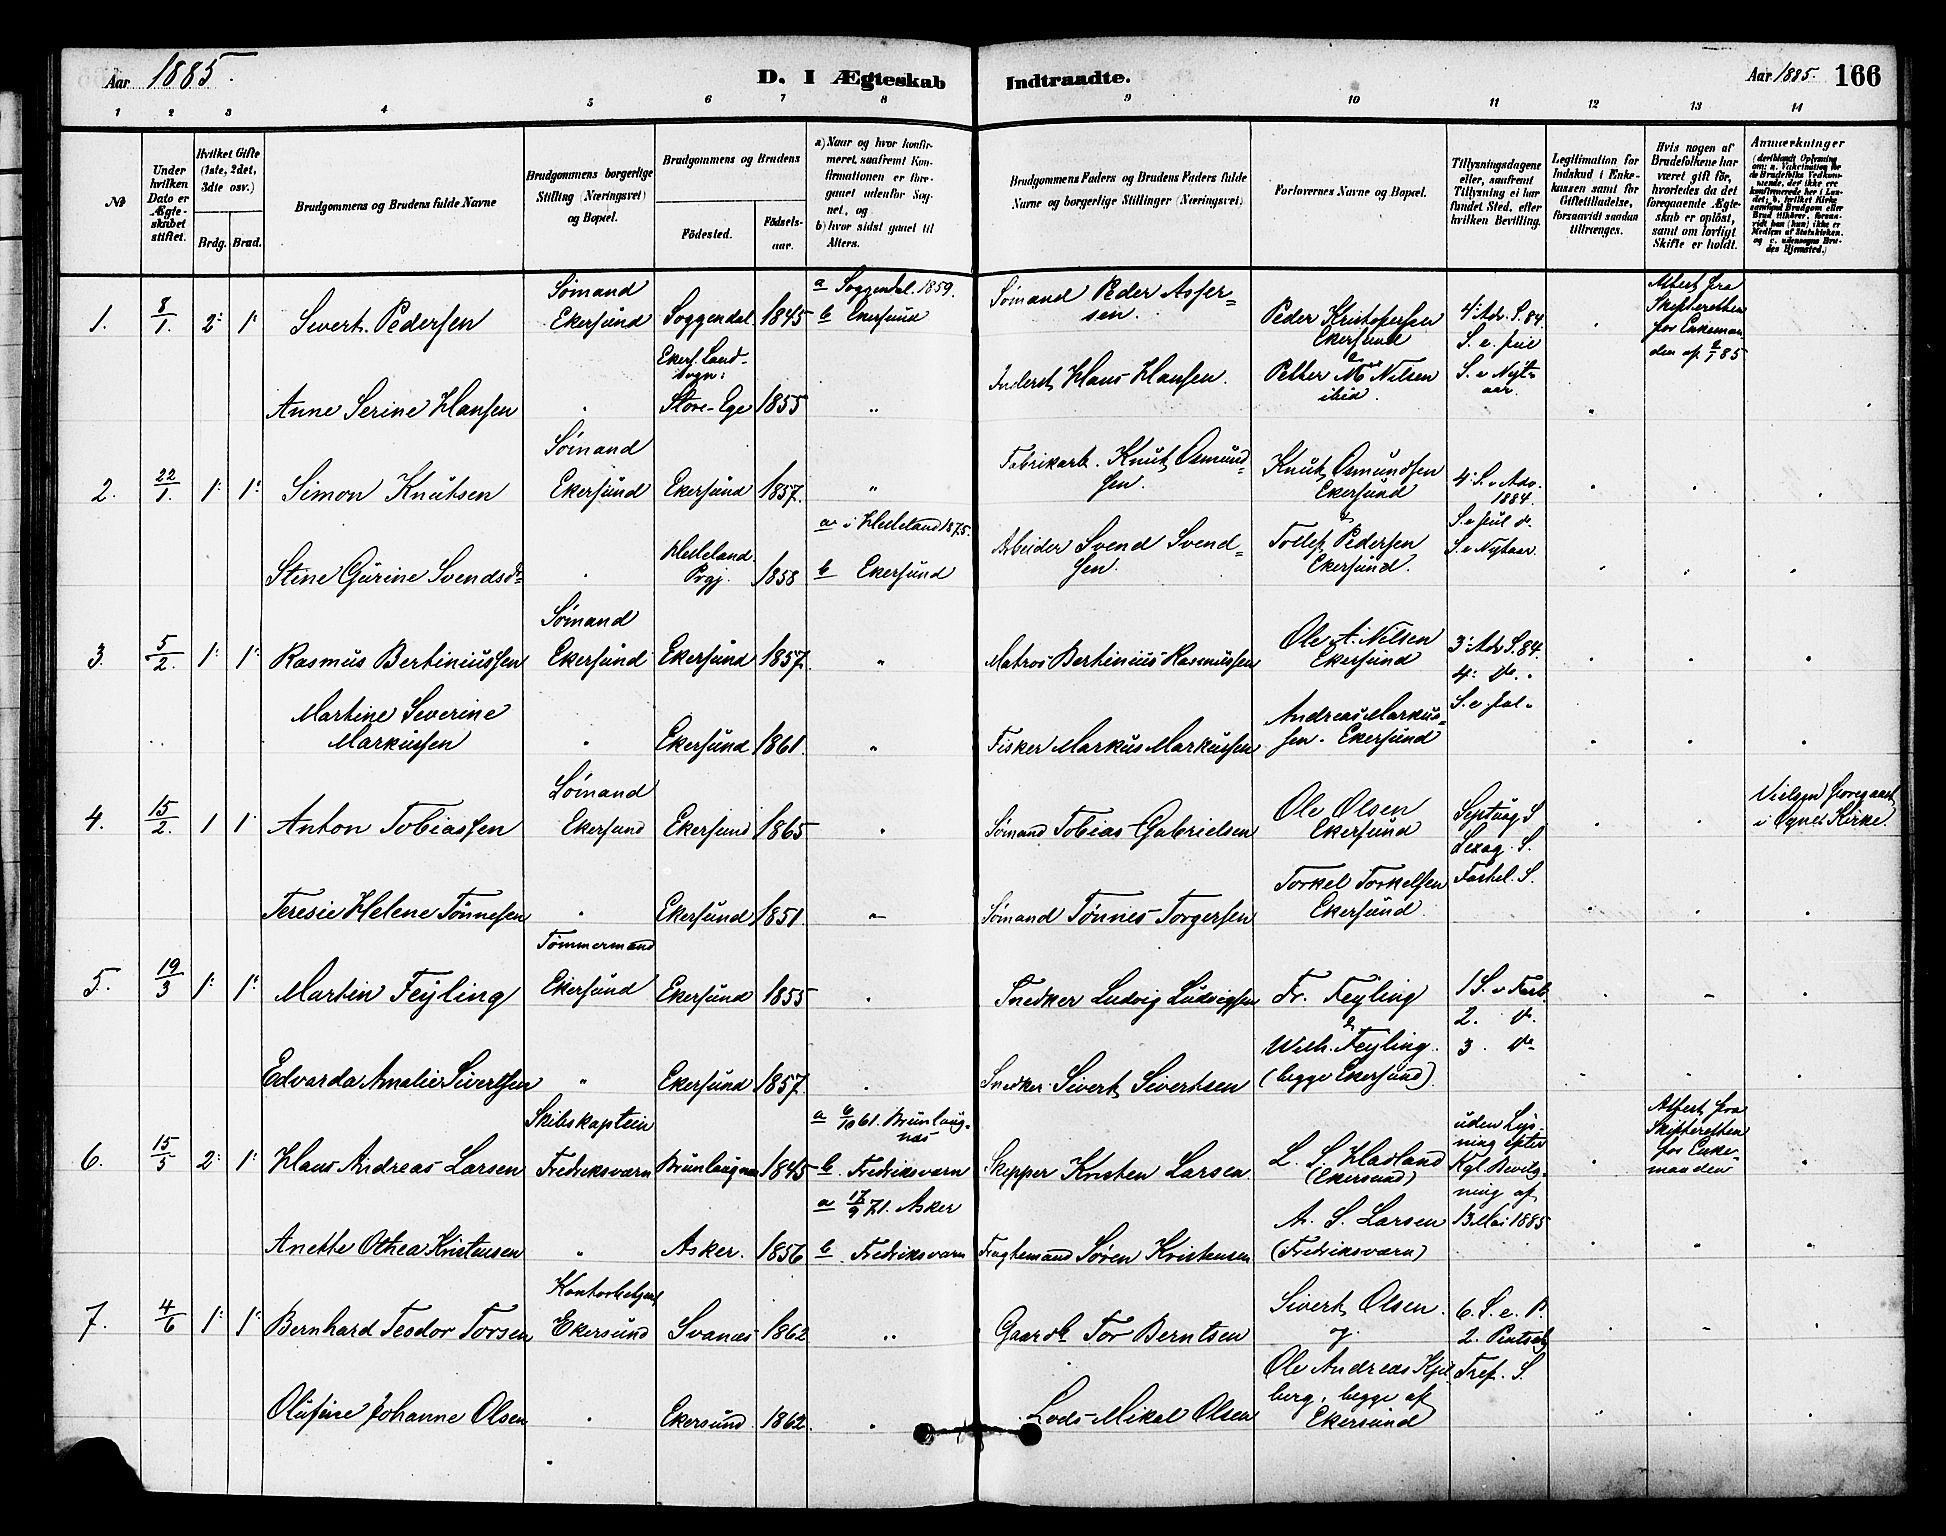 Aar 1885.
D. I Ægteskab Indtraadte.
Aar 1885. 166
1 2 3 4 5 6 7 8 9 10 11 12 13 14
No
Under hvilken Dato er Ægteskabet stiftet.
Hvilket Gifte (1ste, 2det, 3die osv.)
Brdg. Brud.
Brudgommens og Brudens fulde Navne
Brudgommens borgerlige Stilling (Næringsvei) og Bopæl.
Brudgommens og Brudens
Födested. Födsels-aar.
a) Naar og hvor konfirmeret, saafremt Konfirmationen er foregaaet udenfor Sognet, og
b) hvor sidst gaaet til Alters.
Brudgommens Faders og Brudens Faders fulde Navne og borgerlige Stillinger (Næringsvei)
Forlovernes Navne og Bopæl.
Tillysningsdagene eller, saafremt Tillysning ei har fundet Sted, efter hvilken Bevilling.
Legitimation for Indskud i Enkekassen samt for Giftetilladelse, forsaavidt saadan tiltrænges.
Hvis nogen af Brudefolkene har været gift før, hvorledes da det foregaaende Ægteskab er oplöst, samt om lovligt Skifte er holdt.
Anmærkninger
1. 8/1. 2: 1: Sivert Pedersen Sömand Ekersund Soggendal 1845 a Soggendal 1859. b Ekersund Sömand Peder Aspersen. Peder Kristofersen Ekersund 4: Adv. S. 84. S. e. Juil Attest fra Skifteretten for Enkemanden af 2/1 85
Anne Serine Hansen " Ekers. Landsogn: Store-Ege 1855 " Inderst Klaus Hansen. & Petter M. Nilsen ibid. S. e Nyt-aar.
2. 22/1. 1: 1: Simon Knutsen Sömand Ekersund Ekersund 1857. " Fabrikarb. Knut Osmundsen. Knut Osmundsen Ekersund 4: S. i Adv. 1884.
Stine Gurine Svendsdr " Helleland Prgj. 1858 a i Helleland 1875. b Ekersund Arbeider Svend Svendsen. & Tollef Pedersen Ekersund. S. e Jul do. S. e Nytaar.
3. 5/2. 1: 1: Rasmus Bertiniussen Sömand Ekersund Ekersund 1857. " Matros Bertinius Rasmussen Ole A. Nilsen Ekersund 3: Adv S. 84. 4: do.
Martine Severine Markussen " Ekersund 1861. " Fisker Markus Markussen Andreas Markussen. Ekersund S. e. Jul.
4. 15/2. 1 1 Anton Tobiassen Sömand Ekersund Ekersund 1865 " Sömand Tobias Gabrielsen Ole Olsen Ekersund Septuag S. Sexag. S. Vielsen foregaaet i Ognes Kirke.
Teresie Helene Tönnesen " Ekersund 1851. " Sömand Tönnes Torgersen Torkel Torkelsen Ekersund Fastel. S.
5. 19/3 1: 1: Martin Feyling Tömmermand Ekersund Ekersund 1855 " Snedker Ludvig Ludvigsen Fr. Feyling 1 S. e Fast. 2. do.
Edvarda Amalie Sivertsen " Ekersund 1857. " Snedker Sivert Sivertsen & Wilh. Feyling. (begge Ekersund). 3 do
6. 15/5 2: 1: Klaus Andreas Larsen Skibskaptein Fredriksværn Brunlaugnæs 1845 a 6/10 61. Brunlaugnæs b. Fredriksværn Skipper Kristen Larsen. L. S. Hadland (Ekersund) uden Lysning efter Kgl. Bevilgning af 13 Mai 1885 Attest fra Skifteretten for Enkemanden
Anette Othea Kristensen " Asker. 1856 a 17/9 71. Asker b Fredriksværn Fragtemand Sören Kristensen A. S. Larsen (Fredriksværn)
7. 4/6 1: 1: Bernhard Teodor Torsen Kontorbetjent Ekersund Svanæs 1862 " Gaardb. Tor Berntsen Sivert Olsen. og 6. S. e. P. 2. Pintsed.
Olufine Johanne Olsen " Ekersund. 1862. " Lods Mikal Olsen Ole Andreas Kjelberg, begge af Ekersund Tref. S.